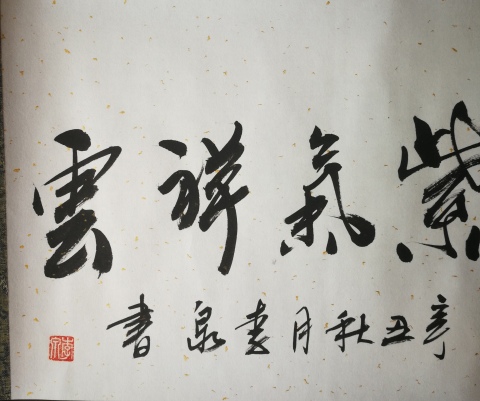 紫氣祥雲
辛丑秋月泉書